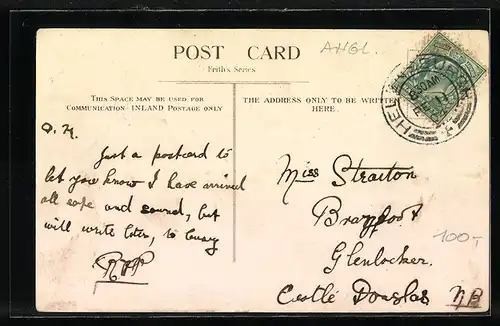 ANGL.
POST CARD
Frith's Series
THIS SPACE MAY BE USED FOR
COMMUNICATION INLAND POSTAGE ONLY
THE ADDRESS ONLY TO BE WRITTEN
HERE.
Just a postcard to
let you know I have arrived
all safe and sound, but
will write later, to
Miss Straiton
Glenlocker.
Castle Douglas NB
100,-